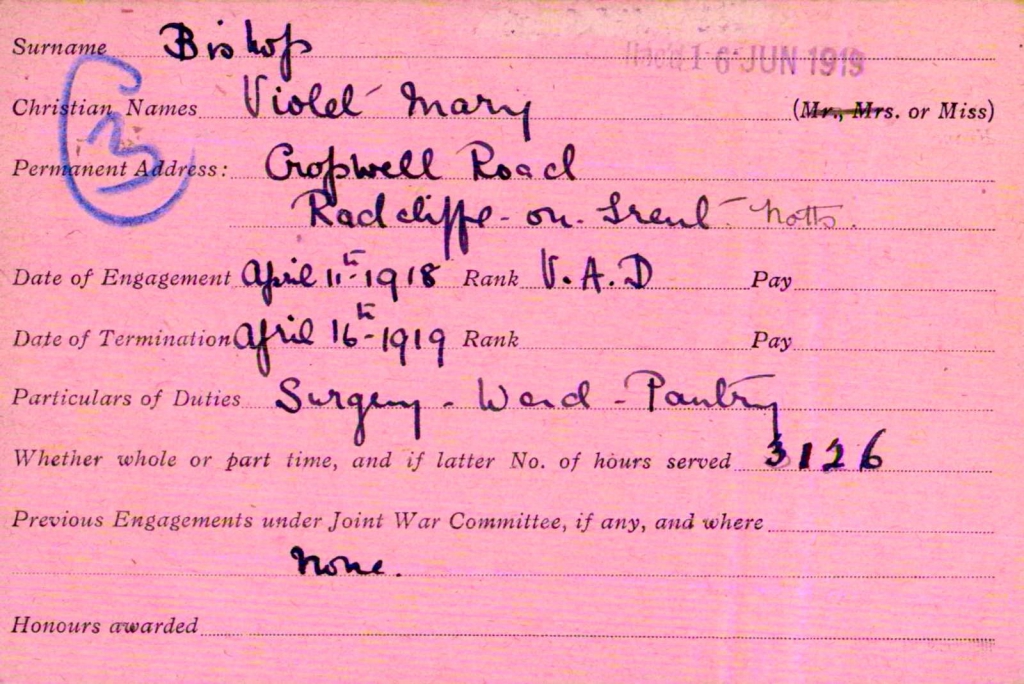 Surname Bishop
Rec'd 16 JUN 1919
Christian Names Violet Mary (Mr., Mrs. or Miss)
Permanent Address: Cropwell Road
Radcliffe-on-Trent Notts.
Date of Engagement April 11th 1918 Rank V.A.D Pay
Date of Termination April 16th 1919 Rank Pay
Particulars of Duties Surgery - Ward - Pantry
Whether whole or part time, and if latter No. of hours served 3126
Previous Engagements under Joint War Committee, if any, and where
None.
Honours awarded